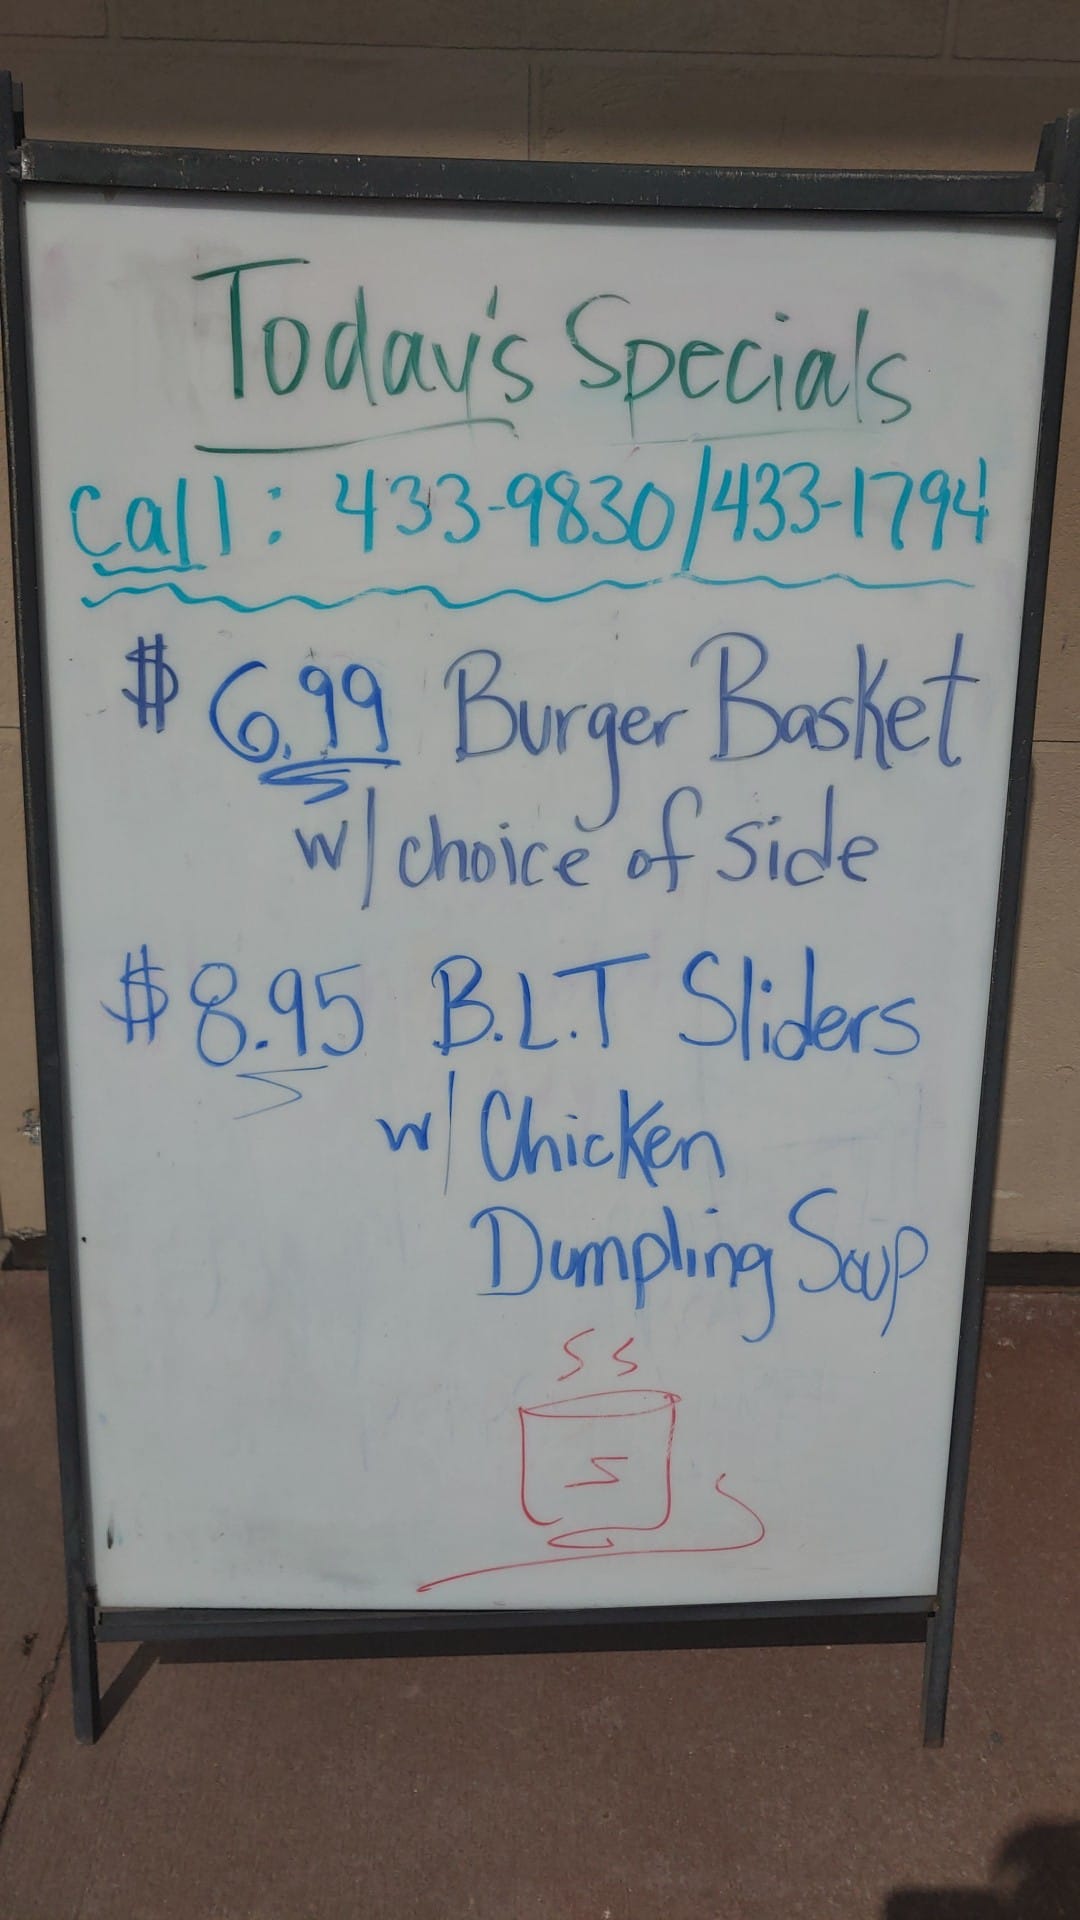 Today's Specials
Call: 433-9830/433-1794
$ 6.99 Burger Basket
w/ choice of side
$8.95 B.L.T Sliders
w/ Chicken
Dumpling Soup